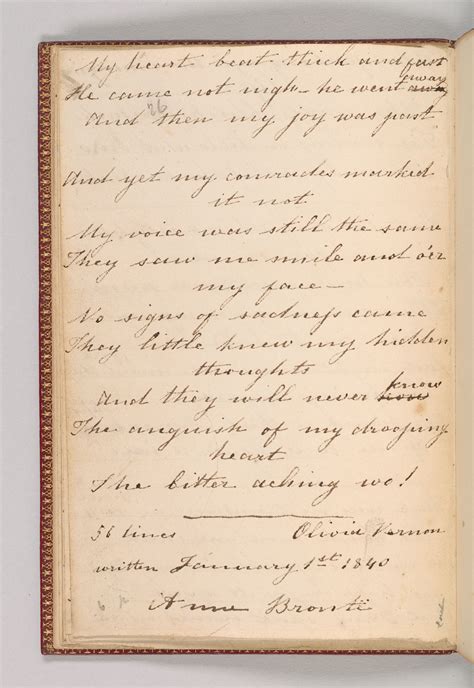 My heart beat thick and fast
away
He came not nigh – he went away
And then my joy was past
And yet my comrades marked
it not
My voice was still the same
They saw me smile and o'er
my face –
No signs of sadness came
They little knew my hidden
thoughts
And they will never know
The anguish of my drooping
heart
The bitter aching wo!
56 lines Olivia Vernon
written January 1st 1840
Anne Brontë